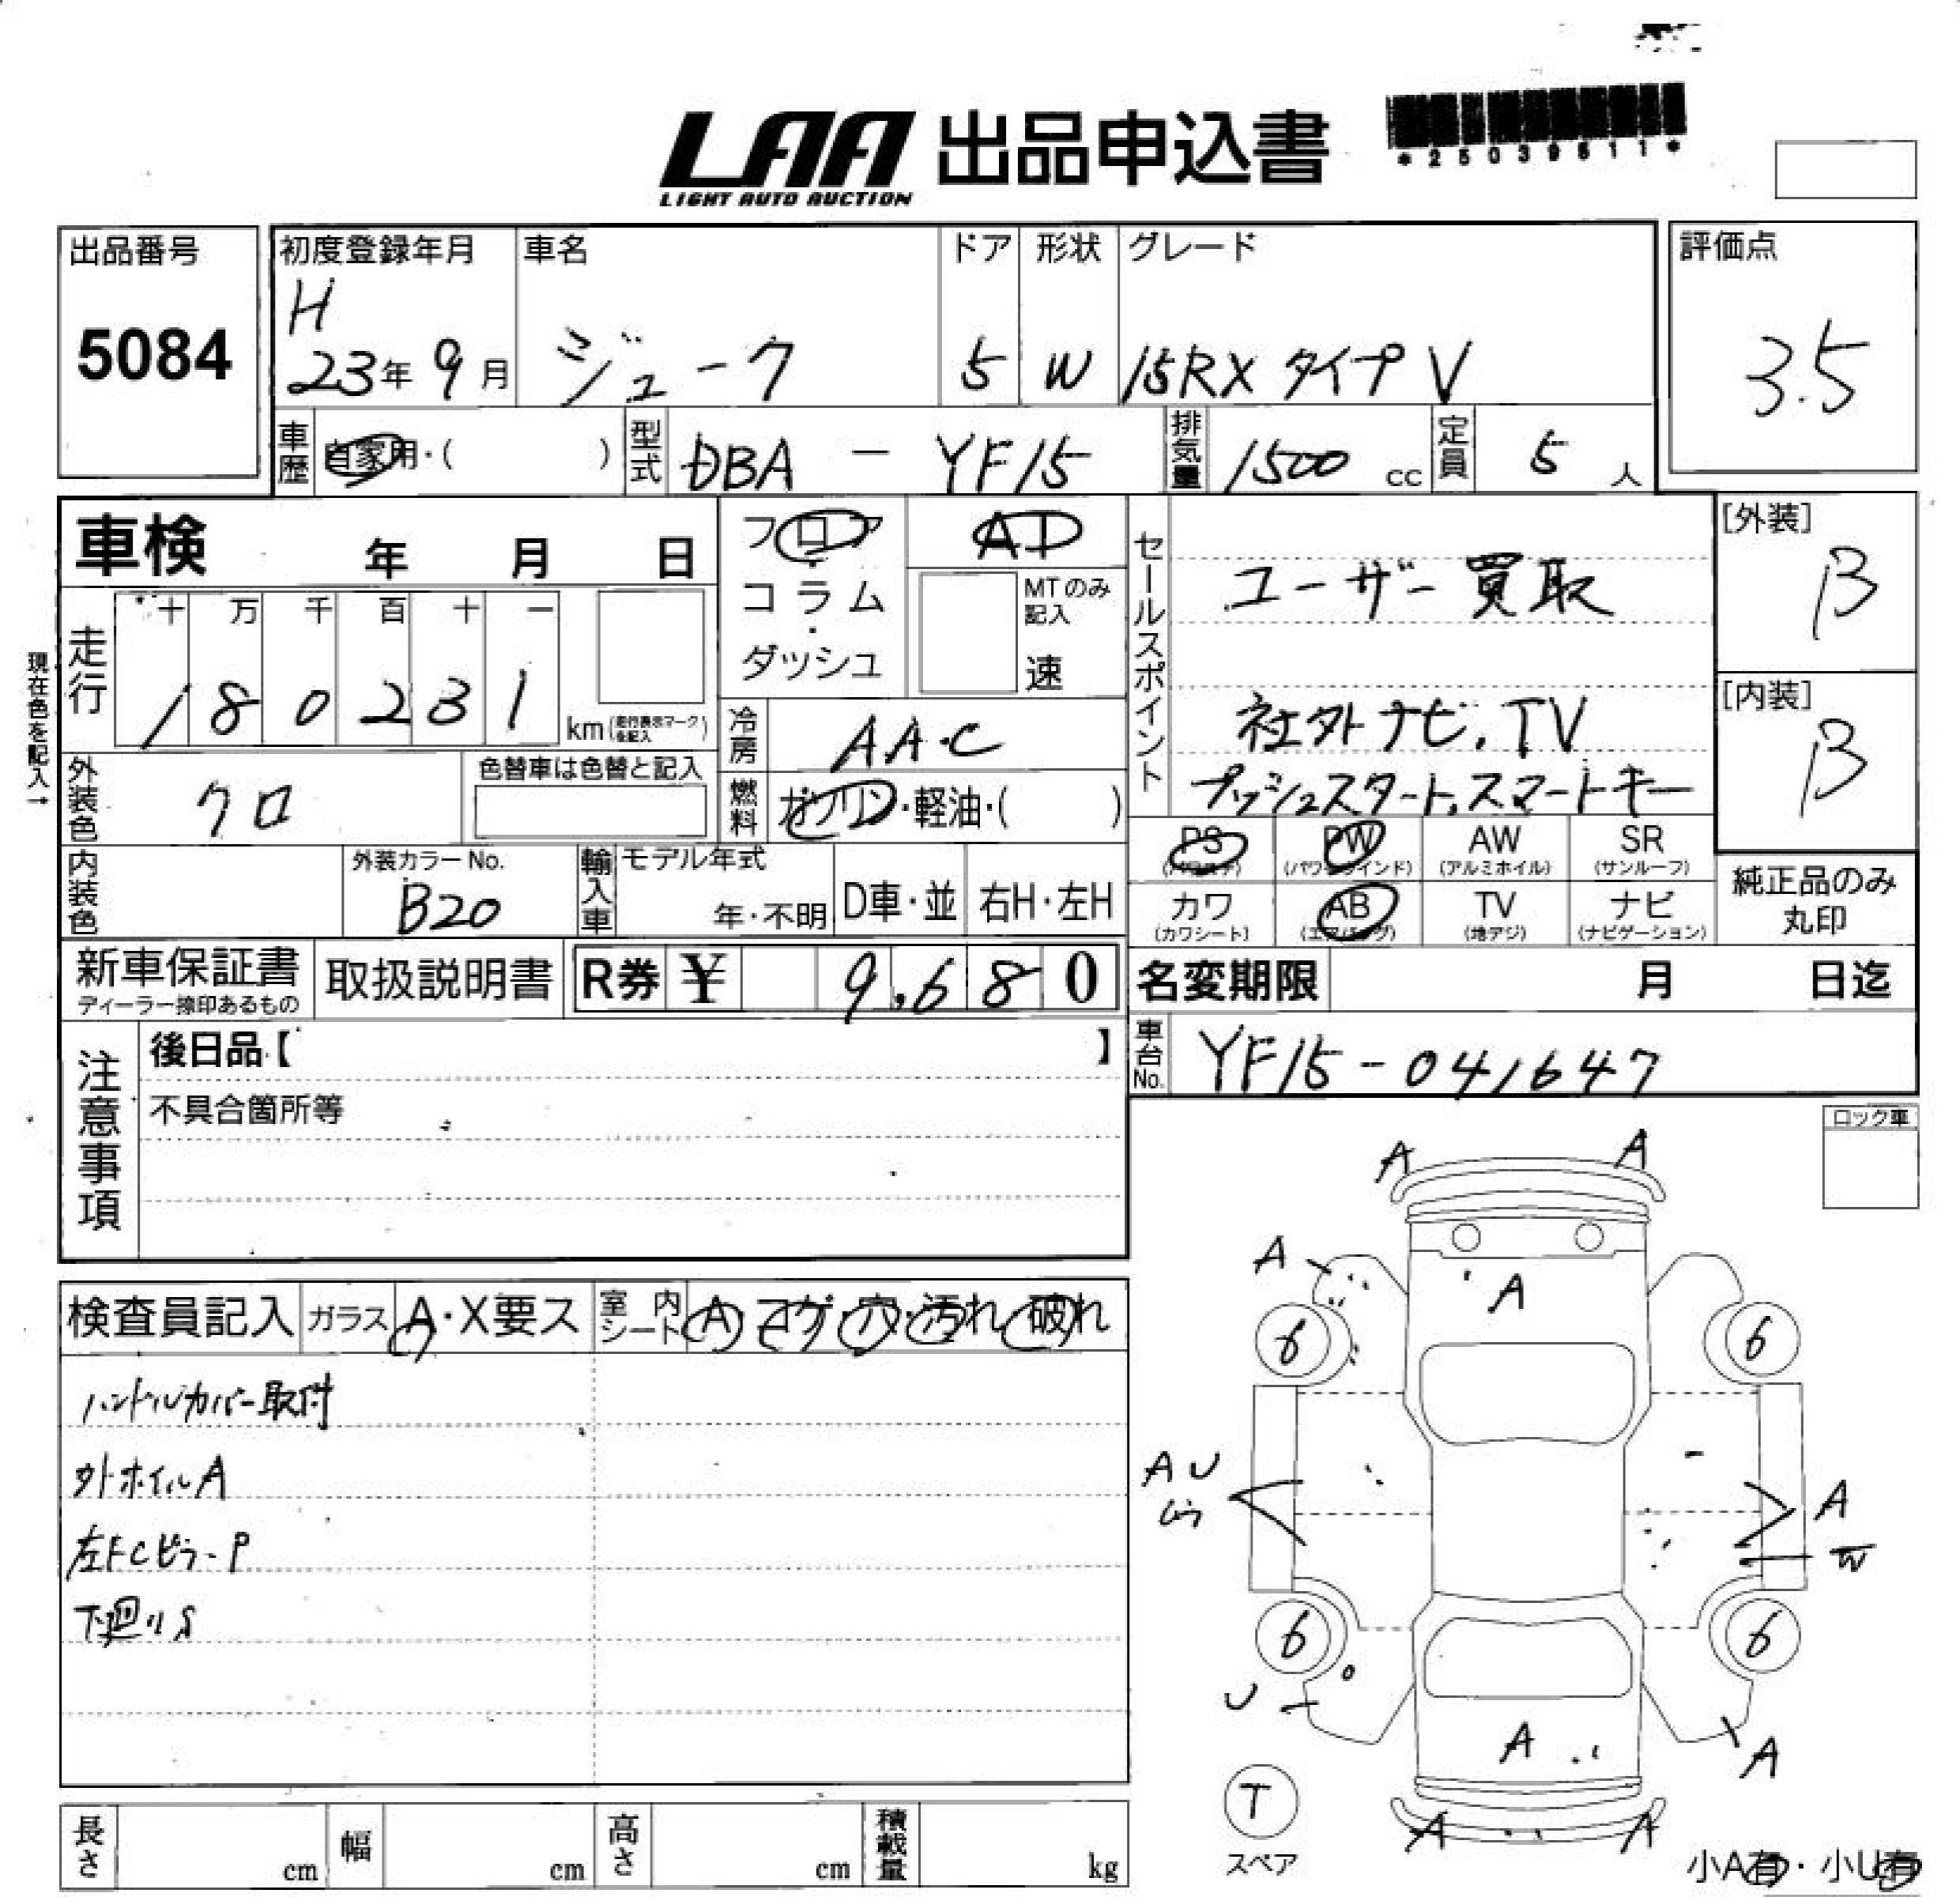 LAA 出品申込書
LIGHT AUTO AUCTION
*25039611*
出品番号
5084
初度登録年月
H
23年 9月
車名
ジューク
ドア
5
形状
W
グレード
15RX タイプV
評価点
3.5
車歴
自家用・( )
型式
DBA - YF15
排気量
1500 cc
定員
5 人
車検 年 月 日
フロア
・
コラム
・
ダッシュ
AT
MTのみ記入
速
セールスポイント
ユーザー買取
社外ナビ、TV
プッシュスタート、スマートキー
[外装]
B
[内装]
B
現在色を記入→
走行
十 万 千 百 十 一
1 8 0 2 3 1
km(走行表示マークを記入)
冷房
AA・C
外装色
クロ
色替車は色替と記入
燃料
ガソリン・軽油・( )
PS (パワステ)
PW (パワーウインド)
AW (アルミホイル)
SR (サンルーフ)
カワ (カワシート)
AB (エアバッグ)
TV (地デジ)
ナビ (ナビゲーション)
純正品のみ
丸印
内装色
外装カラーNo.
B20
輸入車
モデル年式
年・不明
D車・並
右H・左H
新車保証書
ディーラー捺印あるもの
取扱説明書
R券 ¥ 9,680
名変期限 月 日迄
車台No.
YF15-041647
注意事項
後日品【 】
不具合箇所等
ロック車
検査員記入
ガラス
A・X要ス
室内シート
A・コゲ・穴・汚れ・破れ
ハンドルカバー取付
外ホイルA
左FCピラーP
下廻りS
A A
A A
6 6
A U
A
W
6 6
U
A A
T
スペア
A A
小A有・小U有
長さ cm
幅 cm
高さ cm
積載量 kg